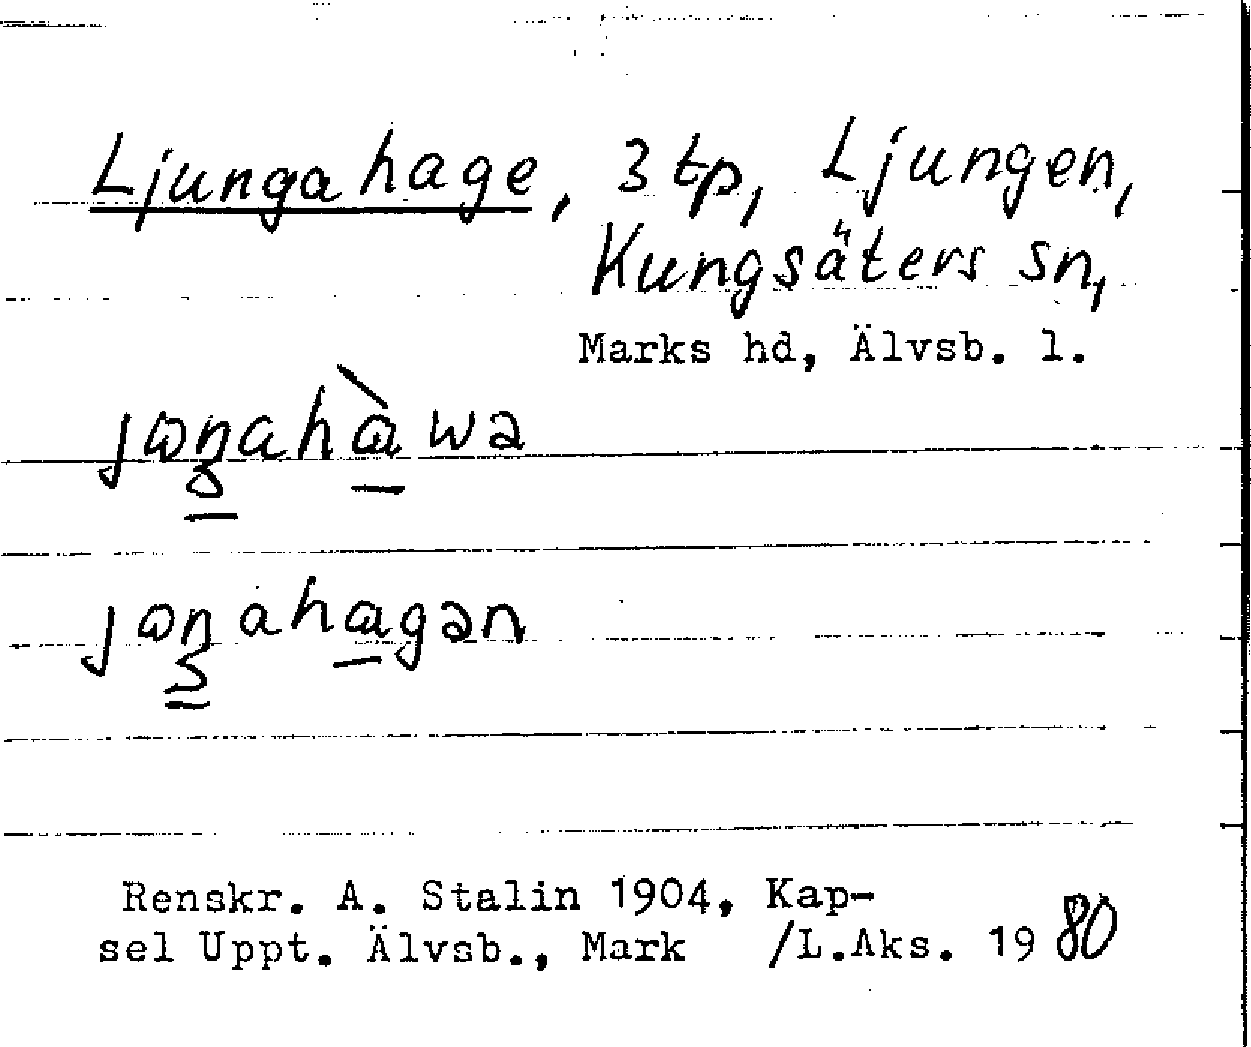 Ljungahage, 3 tp, Ljungen,
Kungsäters sn,
Marks hd, Älvsb. l.
jɷŋahɑ̀wə
jɷŋahɑgən
Renskr. A. Stalin 1904, Kap-
sel Uppt. Älvsb., Mark /L.Aks. 1980